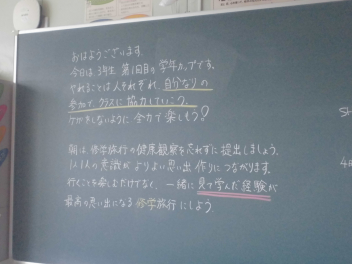 おはようございます。
今日は3年生 第1回目の学年カップです。
やれることは人それぞれ、自分なりの
参加で、クラスに協力していこう。
ケガをしないように全力で楽しもう?
朝は、修学旅行の健康観察を忘れずに提出しましょう。
1人1人の意識がよりよい思い出作りにつながります。
行くことを楽しむだけでなく、一緒に見て学んだ経験が
最高の思い出になる修学旅行にしよう。
4月